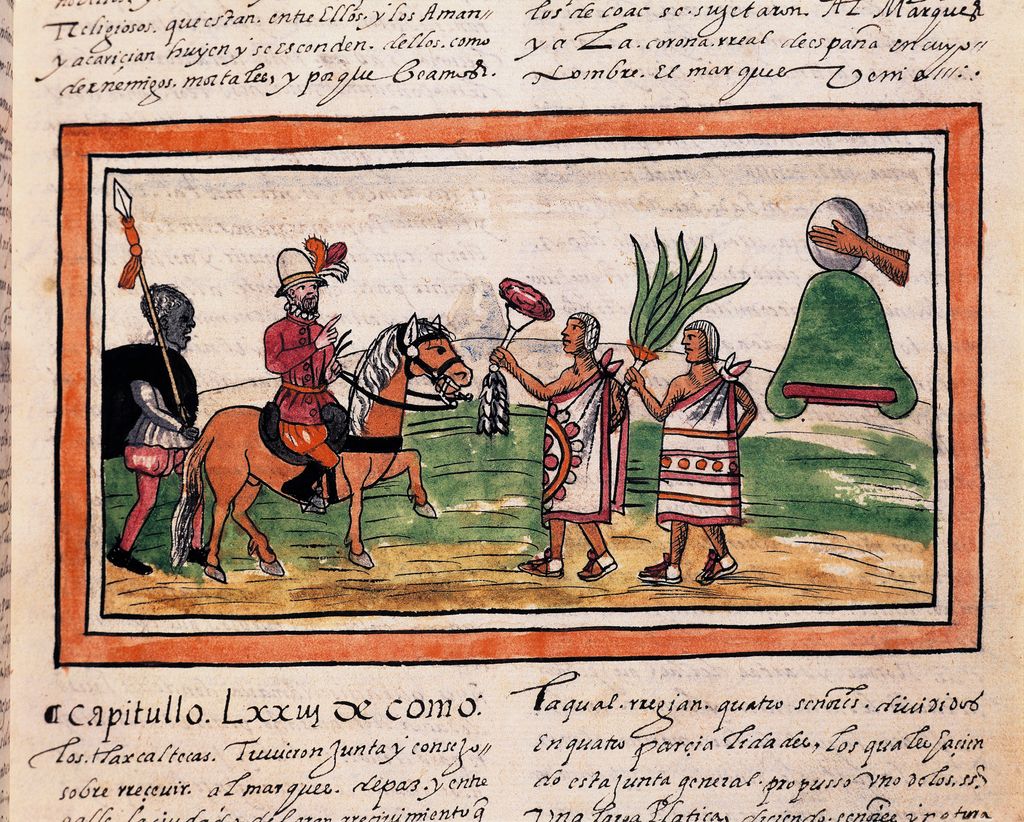 Religiosos. que estan. entre Ellos. y los Aman"
y acarician huyen y se esconden. dellos. como
de enemigos. mortales, y porque Veamos.
los de coac se. sujetaron. Al Marques
y a La. corona. rreal de españa en cuyo"
Nombre. El marques Venia:
Capitullo. Lxxiij de como:
los. tlaxcaltecas. Tuvieron Junta y consejo"
sobre rrecevir. al marques. de paz. y entre
valle la ciudad y del gran rrecivimiento q
la qual. rregian. quatro señores. divididos
En quatro parcialidades, los quales hacien
do esta junta general. propusso vno de los. ss.
Vna larga Platica, diciendo. señores y